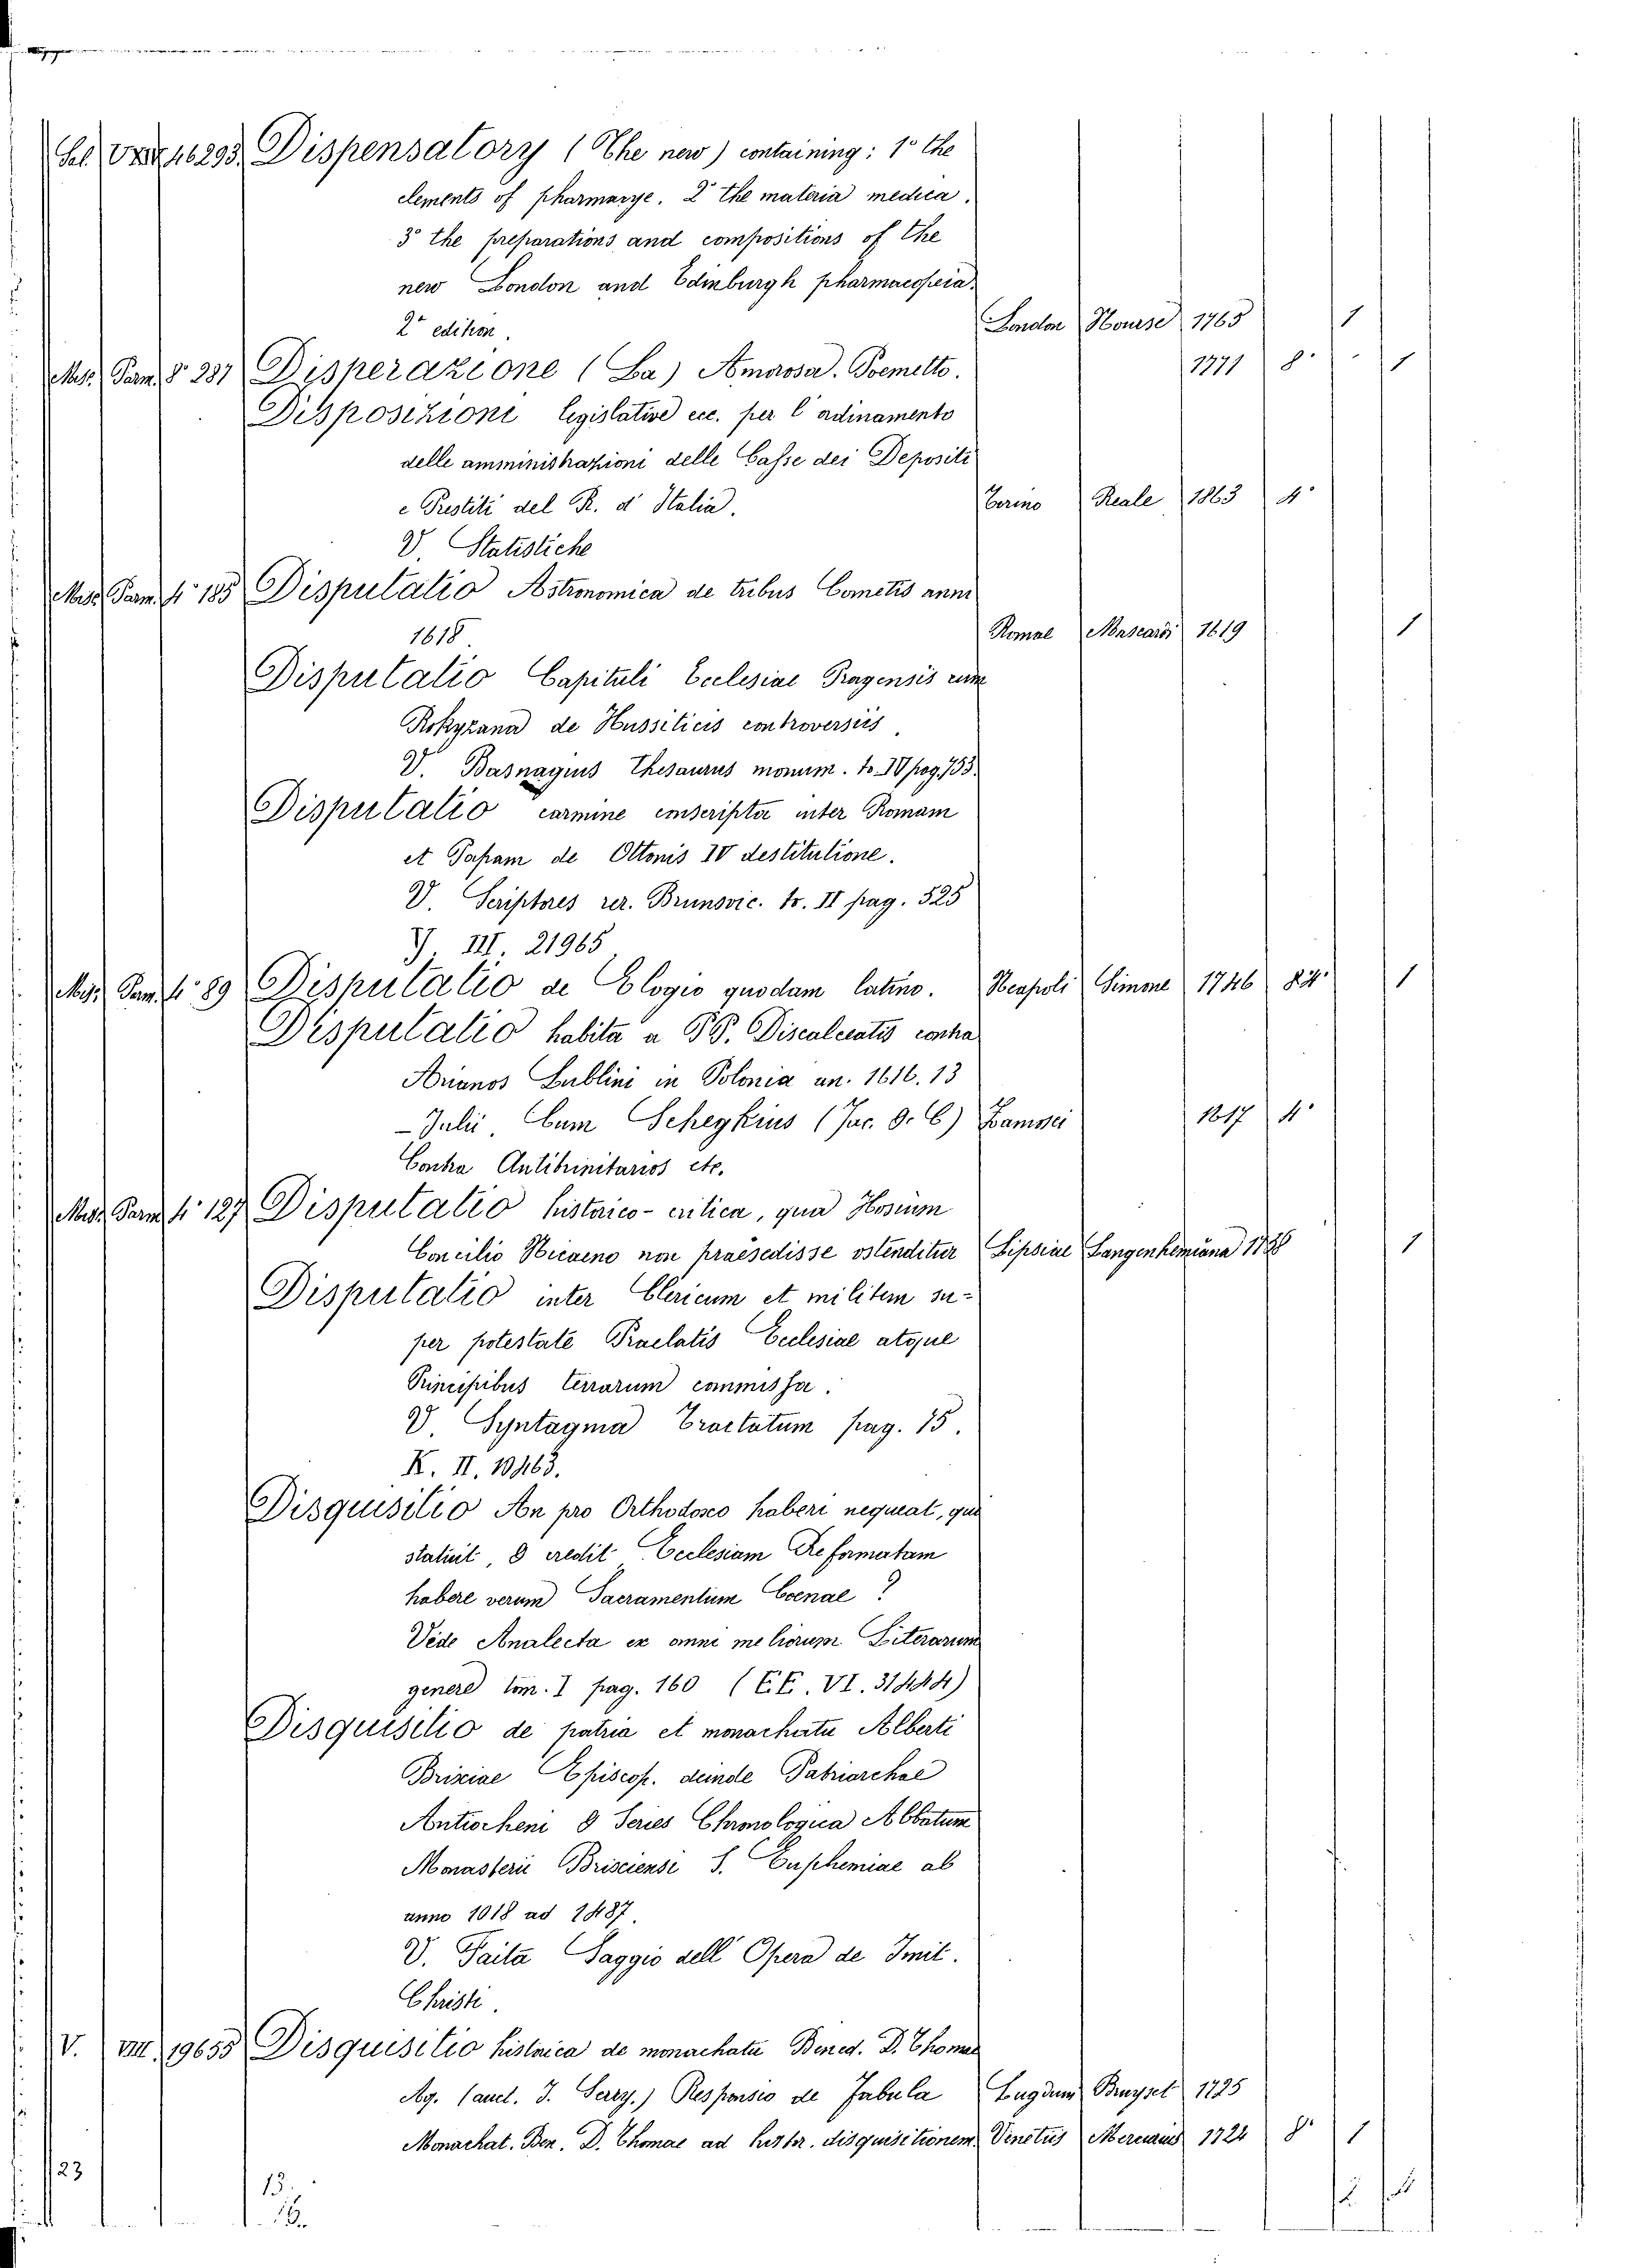 46293. Dispensatory (The new) containing: 1° the
elements of pharmacye. 2° the materia medica.
3° the preparations and compositions of the
new London and Edinburgh pharmacopeia.
2ª edition. London Nourse 1765 1
Misc. Parm. 8° 287 Disperazione (La) Amorosa. Poemetto. 1771 8° 1
Disposizioni legislative ecc. per l'ordinamento
delle amministrazioni delle Casse dei Depositi
e Prestiti del R. d'Italia. Torino Reale 1863 4°
V. Statistiche
Misc. Parm. 4° 185 Disputatio Astronomica de tribus Cometis anni
1618. Romae Mascardi 1619 1
Disputatio Capituli Ecclesiae Pragensis cum
Rokyzana de Hussiticis controversiis.
V. Basnagius Thesaurus monum. to. IV pag. 753.
Disputatio carmine conscripta inter Romam
et Papam de Ottonis IV destitutione.
V. Scriptores rer. Brunsvic. to. II pag. 525
Y. III. 21965
Misc. Parm. 4° 89 Disputatio de Elogio quodam latino. Neapoli Simone 1746 84° 1
Disputatio habita a PP. Discalceatis contra
Arianos Lublini in Polonia an. 1616. 13
- Julii. Cum Schegkius (Jac. D. C) Zamosci 1617 4°
Contra Antitrinitarios etc.
Misc. Parm. 4° 127 Disputatio historico-critica, qua Hosium
Concilio Nicaeno non praesedisse ostenditur Lipsiae Langenhemiana 1
Disputatio inter Clericum et militem su-
per potestate Praelatis Ecclesiae atque
Principibus terrarum commissa.
V. Syntagma Tractatum pag. 15.
K. II. 10463.
Disquisitio An pro Orthodoxo haberi nequeat, qui
statuit, & credit Ecclesiam Reformatam
habere verum Sacramentum Coenae?
Vide Analecta ex omni meliorum Literarum
genere tom. I pag. 160 (EE. VI. 31444)
Disquisitio de patria et monachatu Alberti
Brixiae Episcop. deinde Patriarchae
Antiocheni & Series Chronologica Abbatum
Monasterii Brisciensi S. Euphemiae ab
anno 1018 ad 1487.
V. Faita Saggio dell'Opera de Imit.
Christi.
V. VIII. 19655 Disquisitio historica de monachatu Bened. D. Thomae
Aq. (auct. J. Serry.) Responsio de fabula Lugdum Bruyset 1725
Monachat. Ben. D. Thomae ad histor. disquisitionem Venetiis 1724 8° 1
23
13.